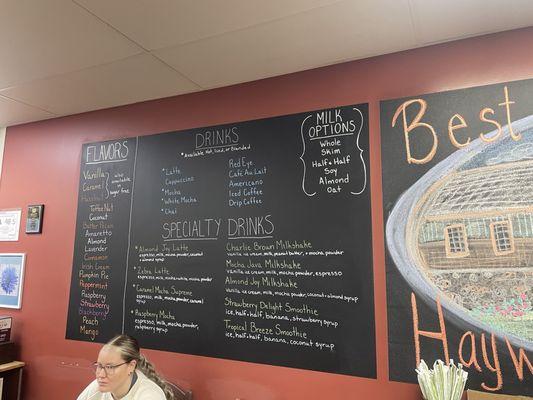 FLAVORS
Vanilla
Caramel
Hazelnut
also available in sugar free
Toffee Nut
Coconut
Butter Pecan
Amaretto
Almond
Lavender
Cinnamon
Irish Cream
Pumpkin Pie
Peppermint
Raspberry
Strawberry
Blackberry
Peach
Mango
DRINKS
*Available Hot, Iced, or Blended
*Latte
Cappuccino
*Mocha
*White Mocha
*Chai
Red Eye
Café Au Lait
Americano
Iced Coffee
Drip Coffee
MILK OPTIONS
Whole
Skim
Half & Half
Soy
Almond
Oat
SPECIALTY DRINKS
*Almond Joy Latte
espresso, milk, mocha powder, coconut
+ almond syrup
*Zebra Latte
espresso, milk, mocha + white mocha powder
*Caramel Mocha Supreme
espresso, milk, mocha powder, caramel
syrup
*Raspberry Mocha
espresso, milk, mocha powder,
raspberry syrup
Charlie Brown Milkshake
Vanilla ice cream, milk, peanut butter, + mocha powder
Mocha Java Milkshake
Vanilla ice cream, milk, mocha powder, espresso
Almond Joy Milkshake
Vanilla ice cream, milk, mocha powder, coconut + almond syrup
Strawberry Delight Smoothie
ice, half + half, banana, strawberry syrup
Tropical Breeze Smoothie
ice, half + half, banana, coconut syrup
Best
Hayw